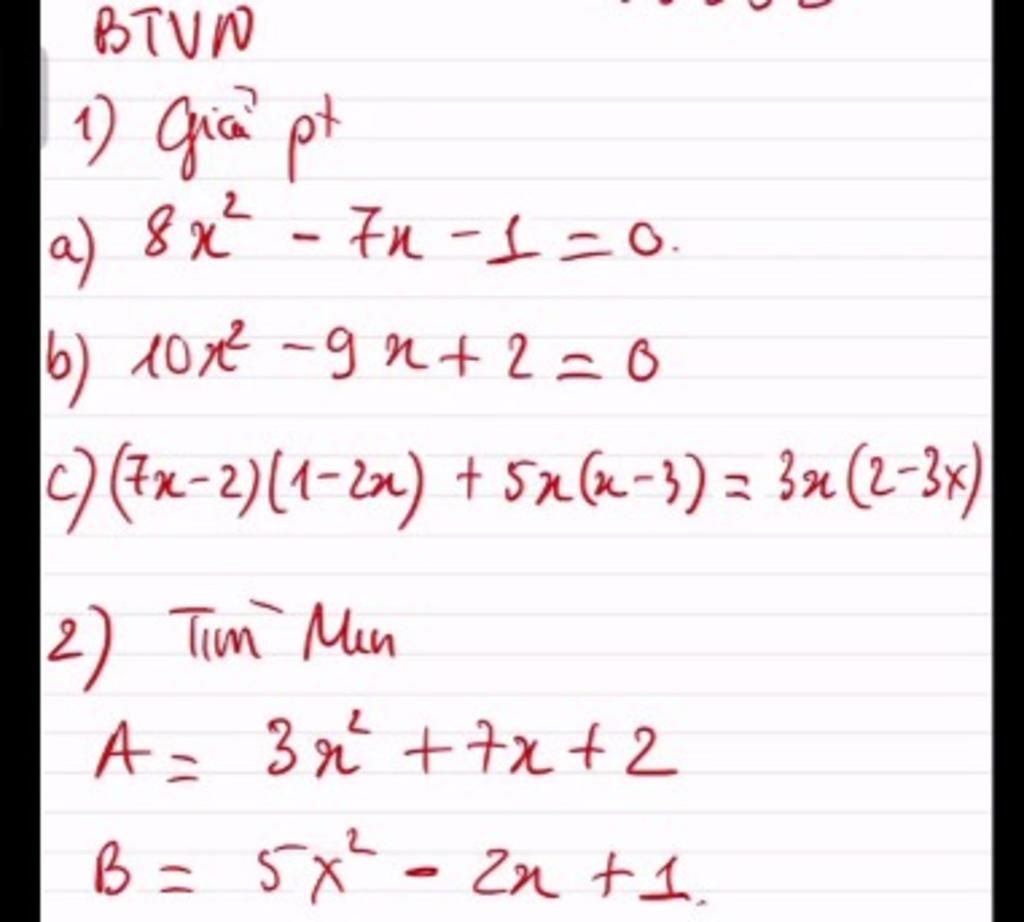 BTVN
1) Giải pt
a) 8x² - 7x - 1 = 0.
b) 10x² - 9x + 2 = 0
c) (7x-2)(1-2x) + 5x(x-3) = 3x(2-3x)
2) Tìm Min
A = 3x² + 7x + 2
B = 5x² - 2x + 1.